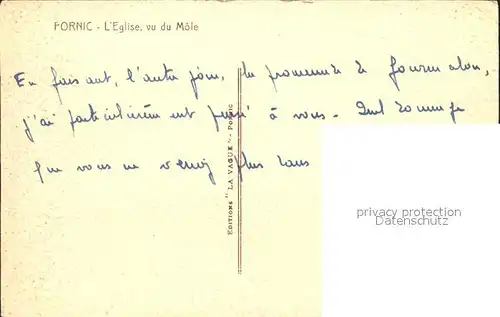 PORNIC - L'Eglise, vu du Môle
En faisant, l'autre jour, la promenade de Gourmalon,
j'ai particulièrement pensé à vous. Quel dommage
que vous ne veniez plus dans
EDITIONS "LA VAGUE" - PORNIC
privacy protection
Datenschutz